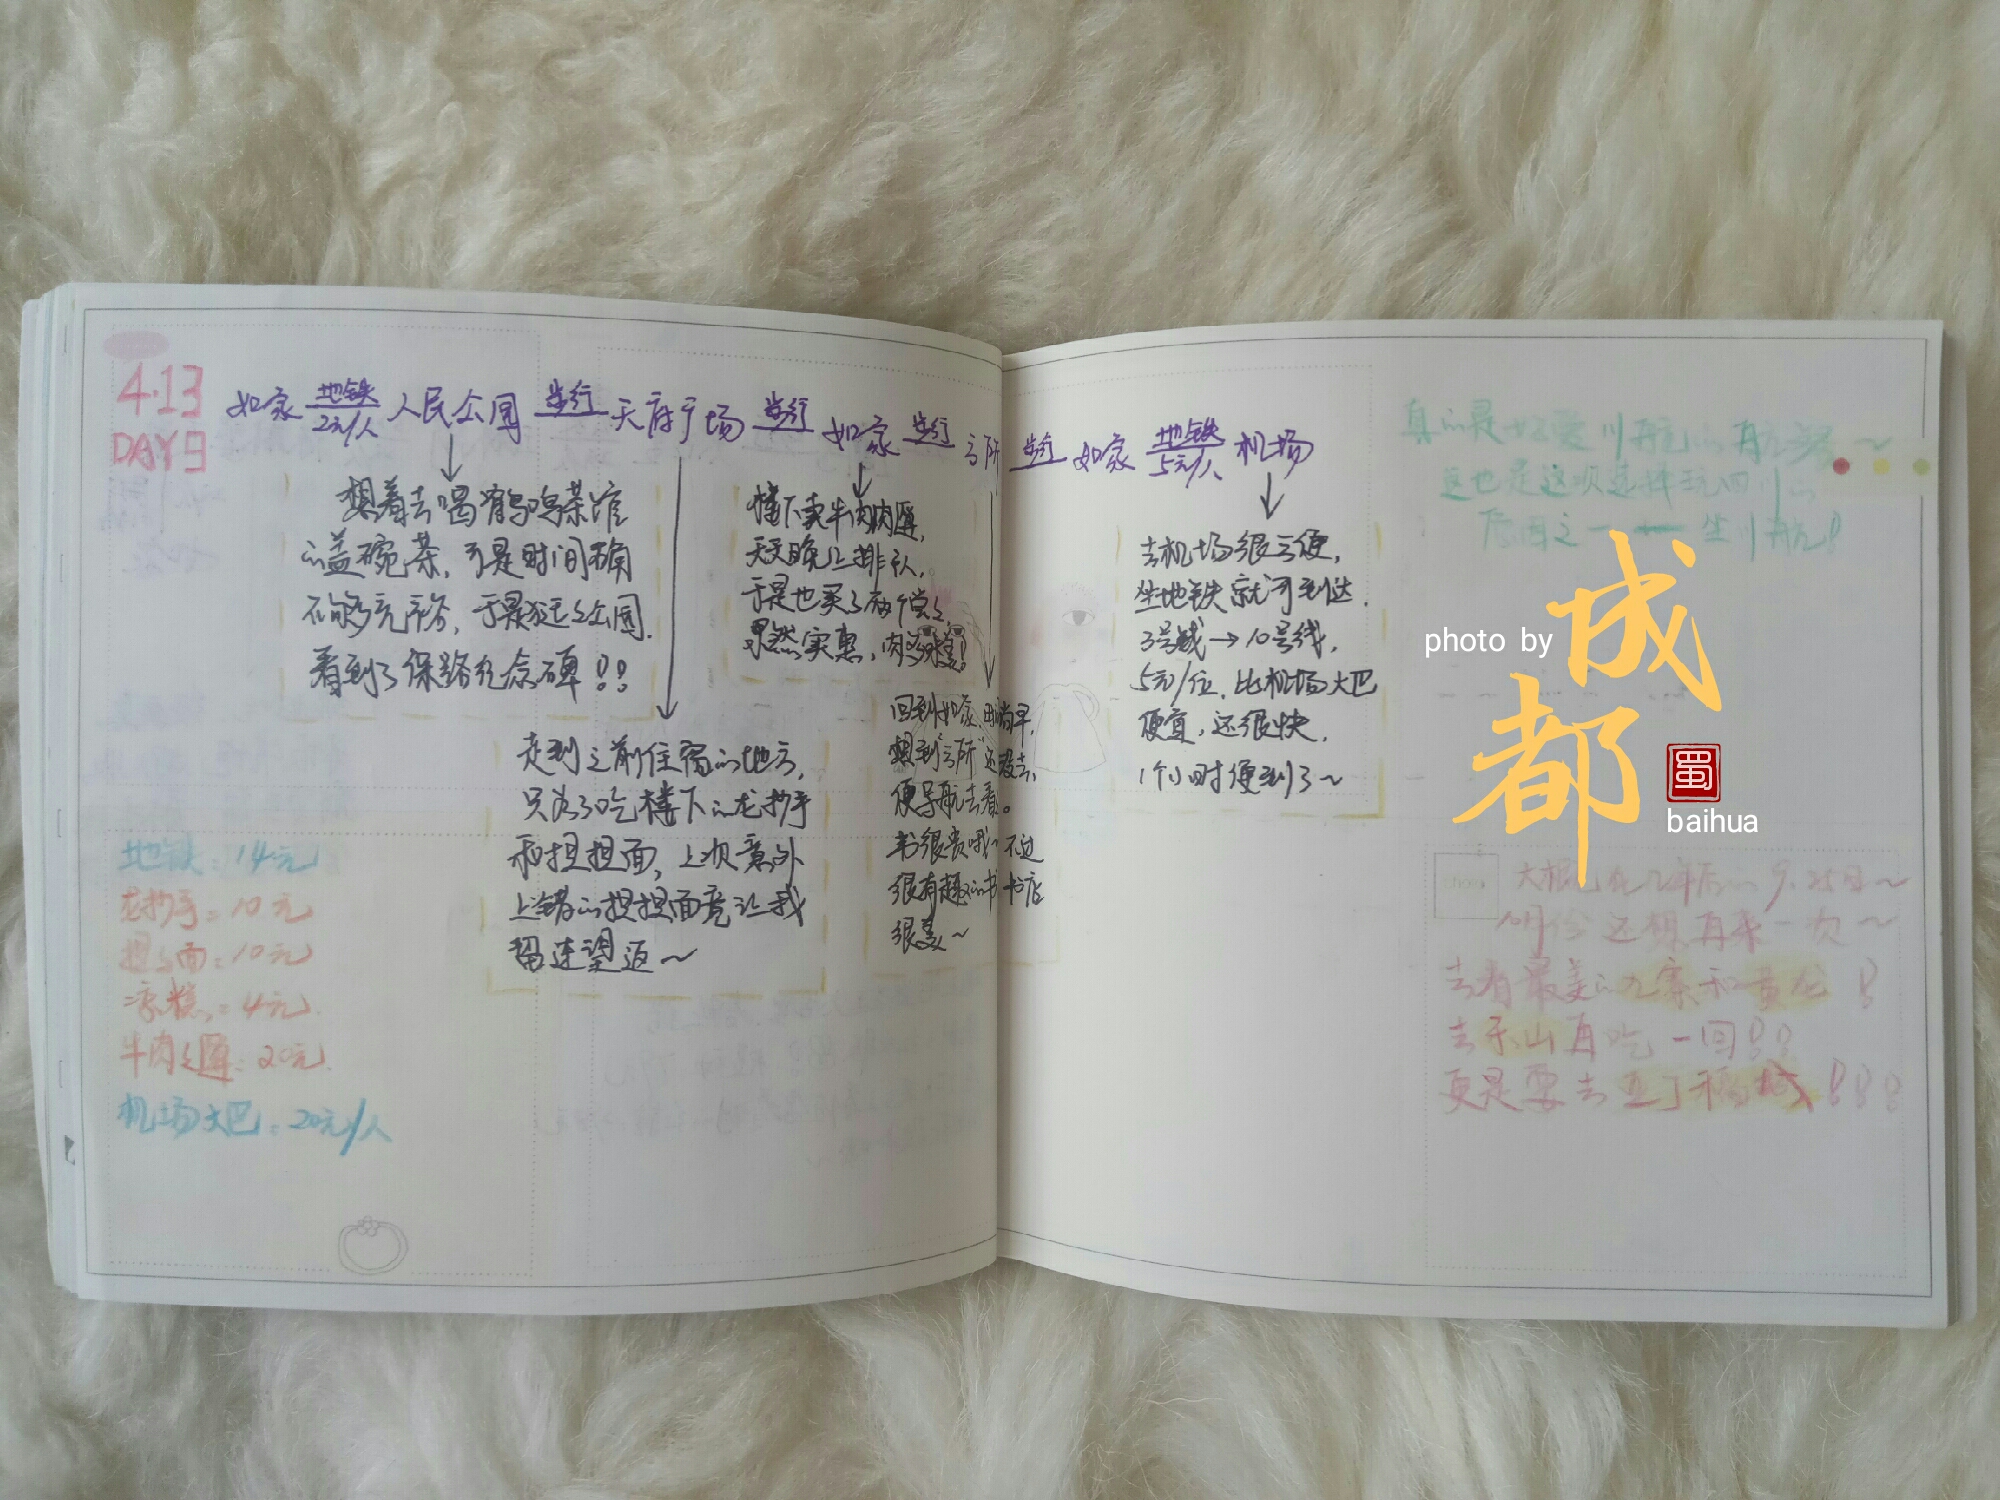 4.13
DAY9
如家 地铁 2元/人 人民公园 步行 天府广场 步行 如家 步行 方所 步行 如家 地铁 5元/人 机场
想着去喝鹤鸣茶馆
的盖碗茶，可是时间不确
不够充裕，于是逛了公园，
看到了保路纪念碑！！
走到之前住宿的地方，
只为了吃楼下的龙抄手
和担担面，上次意外
上错的担担面竟让我
留连望返～
楼下卖牛肉肉
天天晚上排队，
于是也买了两个尝尝，
果然实惠，肉多
回到如家，尚早，
想到“方所”还没去，
便导航去看。
书很贵哦～不过
很有趣的书 书店
很美～
去机场很方便，
坐地铁就可到达，
3号线→10号线，
5元/位，比机场大巴
便宜，还很快，
1个小时便到了～
地铁：14元
龙抄手：10元
担担面：10元
凉糕：4元
牛肉：20元
机场大巴：20元/人
真的是
这也是这次选择玩四川的
原因之一 坐川航！
photo by
成都
蜀
baihua
9.25日～
10月份还想再来一次～
去看最美的九寨和黄龙！
去乐山再吃一回！！
更是要去亚丁稻城！！！